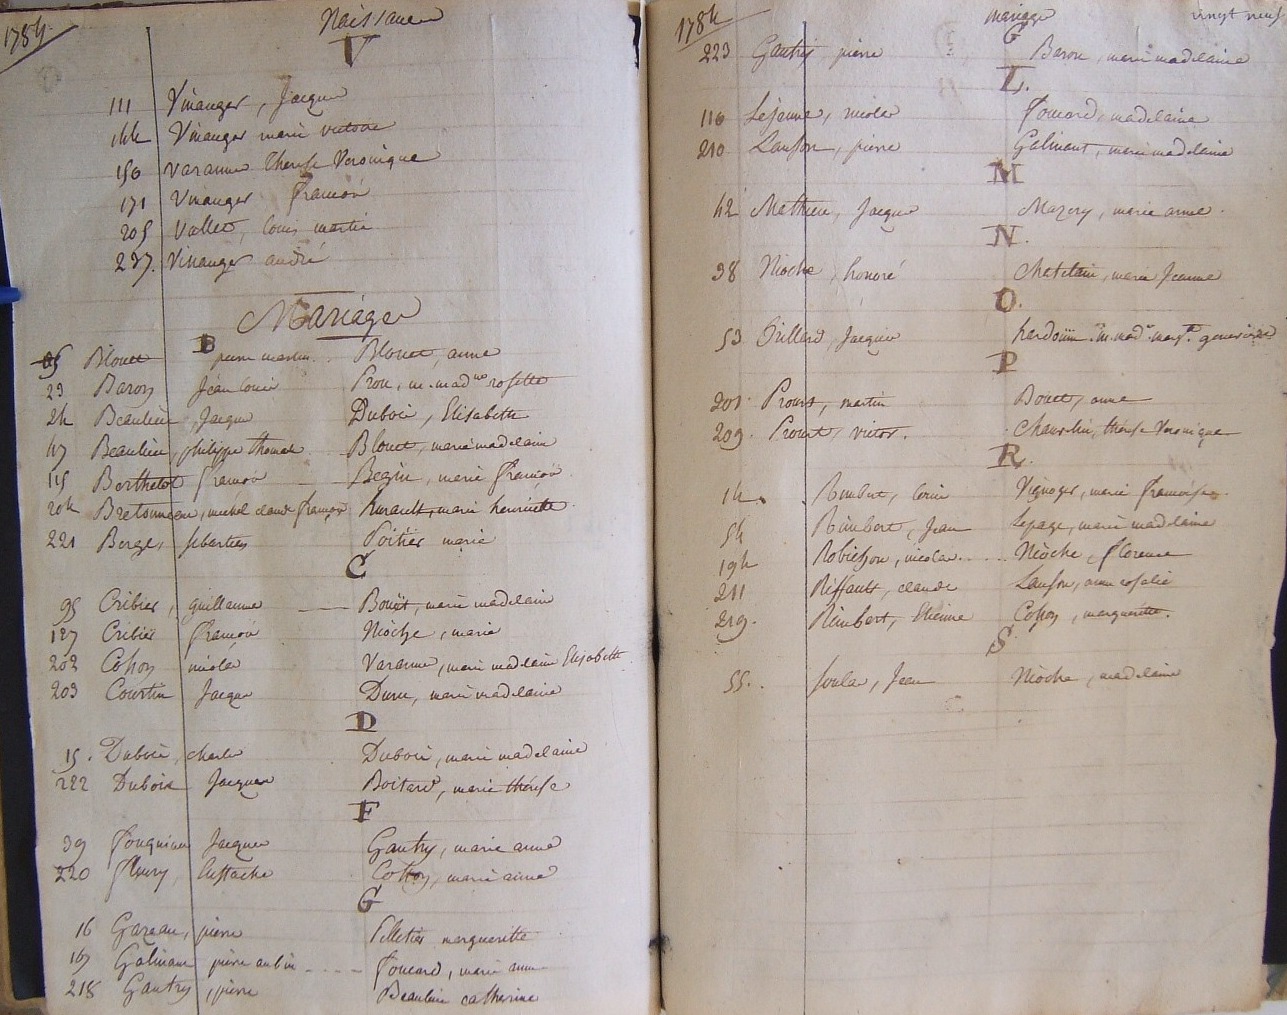 1784
Naissance
V
111 Vinanger, Jacque
144 Vinanger marie victoire
150 Varanne Therese Veronique
171 Vinanger François
205 Vallet, louis martin
237 Vinanger andré
Mariage
B
Blouet pierre martin .. Blouet, anne
23 Baron Jean louis Prou, m. mad.ne rosette
24 Beaulieu, Jacque Dubois, Elisabeth
47 Beaulieu, philippe thomas .. Blouet, marie madelaine
115 Berthelot françois Begin, marie françoise
204 Bretonneau, michel claude françois Hurault, marie henriette
221 Berge, sebastien Poitier marie
C
95 Cribier, guillaume Bouët, marie madelaine
127 Cribier françois Nioche, marie
202 Cohon nicolas Varanne, marie madelaine Elisabeth
203 Courtin Jacque marie madelaine
D
15. Dubois, charles Dubois, marie madelaine
222 Dubois Jacques Boitard, marie thérèse
F
39 Jacques Gautry, marie anne
220 fleury, Eustache Cohon, marie anne
G
16 Gazeau, pierre Pelletier marguerite
pierre aubin .... Foucard, marie anne
218 Gautry, pierre Beaulieu catherine
1784
mariage
vingt neuf
G
223 Gautry pierre Baron, marie madelaine
L.
116 Lejeune, nicolas Foucard, madelaine
210 Lanson, pierre Galineau, marie madelaine
M
42 Mathieu, Jacque Mazery, marie anne.
N.
38 Nioche, honoré Chatelain, marie Jeanne
O.
53 Jacques hardouin
P
201. Proust, martin Bouet, anne
209. Proust, victor. thérèse Veronique
R.
14. Rimbert, louis marie françoise.
54 Rimbert, Jean Lepage, marie madelaine
194 Robichon, nicolas .... Nioche, florence
211 Riffault, claude Lanson, anne rosalie
219. Rimbert, Etienne Cohon, marguerite.
S
55. Soulas, Jean Nioche, madelaine